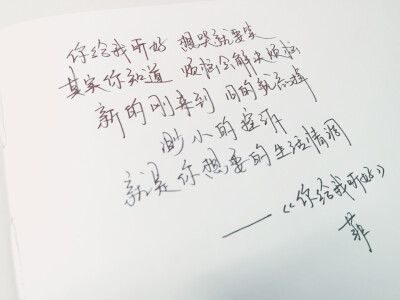 你给我听好 想哭就要笑
其实你知道 烦恼会解决烦恼
新的刚来到 旧的就忘掉
渺小的控诉
就是你想要的生活情调
——《你给我听好》
菲